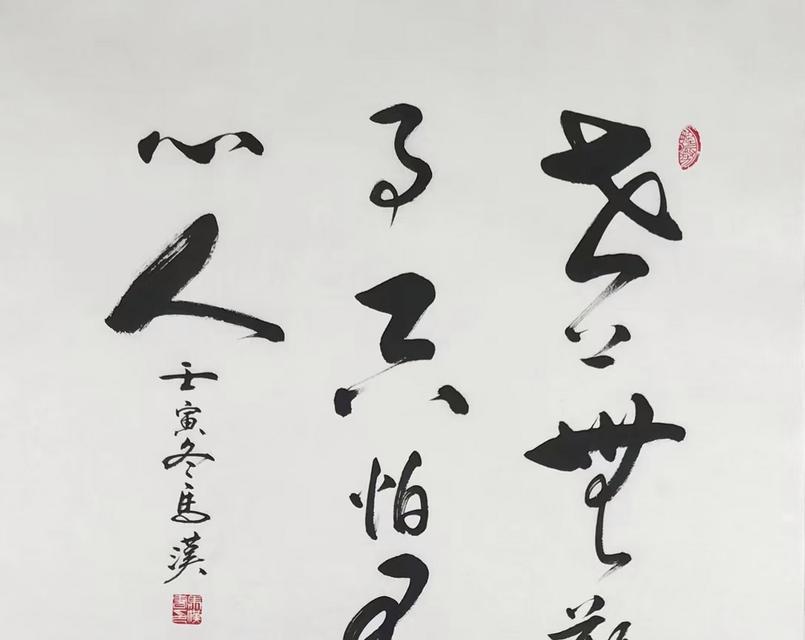 世上無難
事只怕有
心人
壬寅冬馬漢